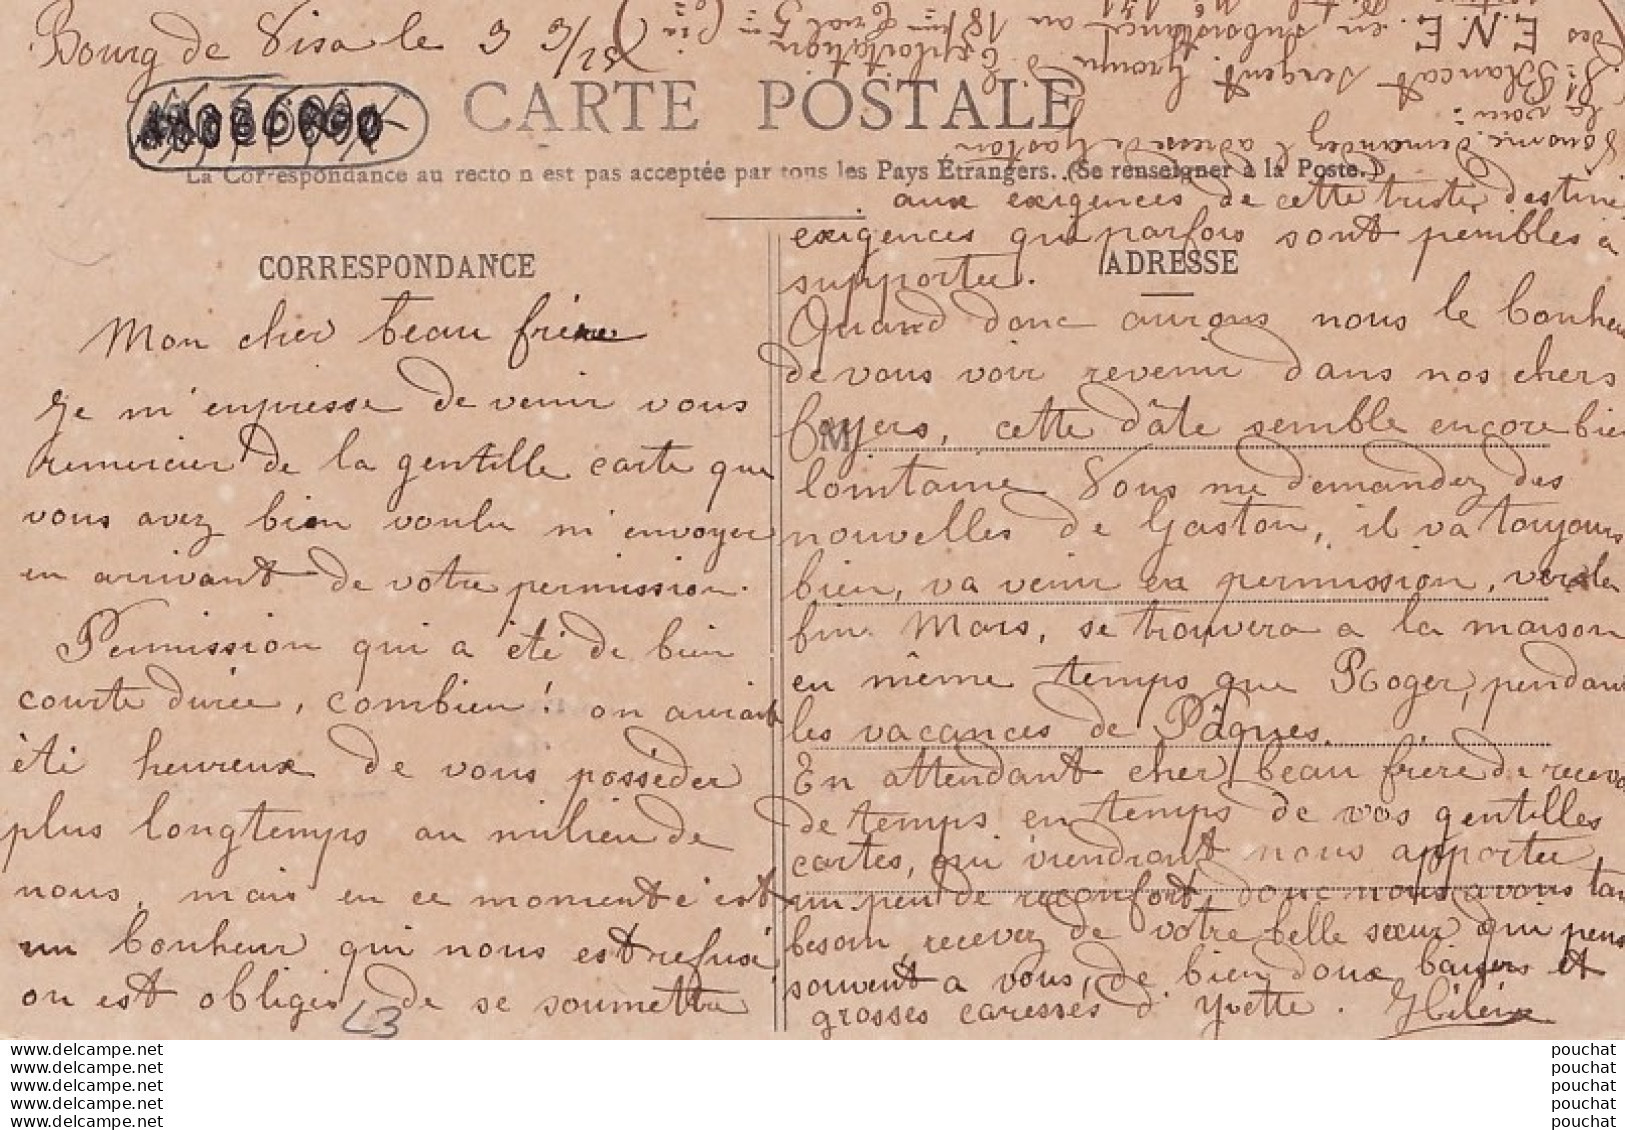 Bourg de Visa le 3 3/18
CARTE POSTALE
La Correspondance au recto n est pas acceptée par tous les Pays Étrangers. (Se renseigner à la Poste.)
CORRESPONDANCE
Mon cher beau frère
Je m'empresse de venir vous
remercier de la gentille carte que
vous avez bien voulu m'envoyer
en arrivant de votre permission.
Permission qui a été de bien
courte durée, combien! on aurait
été heureux de vous posséder
plus longtemps au milieu de
nous, mais en ce moment c'est
un bonheur qui nous est refusé
on est obligés de se soumettre
L3
aux exigences de cette triste destiné
exigences qui parfois sont penibles à
supporter.
ADRESSE
Quand donc aurons nous le bonheur
de vous voir revenir dans nos chers
foyers, cette dâte semble encore bien
M
lointaine Vous me demandez des
nouvelles de Gaston, il va toujours
bien, va venir en permission, vers la
fin Mars, se trouvera a la maison
en même temps que Roger, pendant
les vacances de Pâques.
En attendant cher beau frère de recevoir
de temps en temps de vos gentilles
cartes, qui viendront nous apporter
un peu de reconfort, donc nous avons tan
besoin, recevez de votre belle sœur qui pens
souvent a vous, de bien doux baisers et
grosses caresses d'Yvette. Hélène
Vous me demandez l'adresse de Gaston
la voici:
St Blancat sergent Groupe d'Exploitation
des E.N.E. en subsistance au 18ème Génial 5ème Cie
www.delcampe.net
www.delcampe.net
www.delcampe.net
www.delcampe.net
www.delcampe.net
pouchat
pouchat
pouchat
pouchat
pouchat